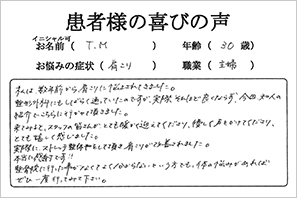 患者様の喜びの声
イニシャル可
お名前（ T.M ） 年齢（ 30 歳）
お悩みの症状（ 肩こり ） 職業（ 主婦 ）
私は数年前から肩こりに悩まされてきました。
整形外科にもしばらく通っていたのですが、実際それほど良くならず、今回知人の
紹介でこちらに行かせて頂きました。
来てみると、スタッフの皆さんがとても暖かく迎えてくださり、優しく声をかけてくださり、
とても嬉しく思いました。
実際に、ストレッチ、整体等をして頂き肩こりが改善されました。
本当に感謝です!!
整骨院に行った事がなくてよく分からないという方でも、体の悩みがあれば
ぜひ一度行ってみて下さい。